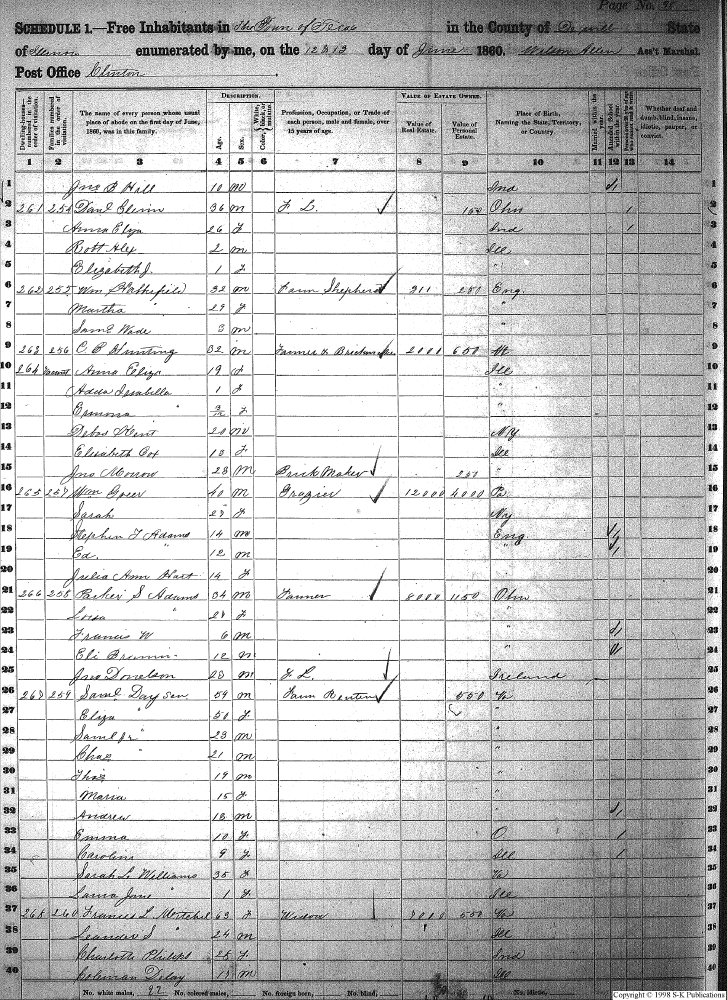 Page No. 38
SCHEDULE 1.—Free Inhabitants in The Town of Texas in the County of De witt State
of Illinois enumerated by me, on the 12 & 13 day of June 1860. Wilson Allen Ass't Marshal.
Post Office Clinton
Dwelling-houses—numbered in the order of visitation.
Families numbered in the order of visitation.
The name of every person whose usual place of abode on the first day of June, 1860, was in this family.
DESCRIPTION.
Age.
Sex.
Color, White, black, or mulatto.
Profession, Occupation, or Trade of each person, male and female, over 15 years of age.
VALUE OF ESTATE OWNED.
Value of Real Estate.
Value of Personal Estate.
Place of Birth, Naming the State, Territory, or Country.
Married within the year.
Attended School within the year.
Whether deaf and dumb, blind, insane, idiotic, pauper, or convict.
1 2 3 4 5 6 7 8 9 10 11 12 13 14
1 Jno B Hill 10 m Ind 1 1
2 261 254 Danl 36 m F. L. 150 Ohio 1 2
3 Anna Elza 26 f Ind 1 3
4 Robt Alex 2 m Ill 4
5 Elizabeth J. 1 f " 5
6 262 255 Wm 32 m Farm Shepherd 211 250 Eng. 6
7 Martha " 29 f " 7
8 Saml Wade 3 m " 8
9 263 256 C. P. Hunting 32 m Farmer & 2000 600 Vt 9
10 264 Vacant Anna Eliza 19 f Ill 10
11 Adda Isabella 1 f " 11
12 " f " 12
13 Kent 20 m NY 13
14 Elizabeth Cox 10 f Ill 14
15 Jno Morrow 23 m Brick Maker 250 " 15
16 265 257 Wm 40 m Grazier 12000 4000 Pa 16
17 Sarah " 29 f NY 17
18 Stephen F Adams 14 m Eng 1 18
19 Ed. " 12 m " 1 19
20 Julia Ann Hart 14 f " 20
21 266 258 Parker S Adams 34 m Farmer 8000 1150 Ohio 21
22 " 28 f " 22
23 Francis W 6 m " 1 23
24 Eli 12 m " 1 24
25 Jno Donelson 23 m F. L. Ireland 25
26 267 259 Saml Day sen 59 m Farm Renter 550 Va 26
27 Eliza " 50 f " 27
28 Saml Jr " 23 m " 28
29 Chas " 21 m " 29
30 Thos 19 m " 30
31 Maria 15 f " 31
32 Andrew 13 m " 1 32
33 Emma 10 f O 1 33
34 Caroline 9 f Ill 1 34
35 Sarah L. Williams 35 f Va 35
36 Laura Jane " 1 f Ill 36
37 268 260 Frances L Mitchel 63 f Widow 500 Va 37
38 Leander S " 24 m Ill 38
39 Charlotte Phillips 25 f Ind 39
40 Coleman Delay 15 m Ill 40
No. white males, 22 No. colored males, No. foreign born, No. blind,
No. idiotic,
Copyright © 1998 S-K Publications